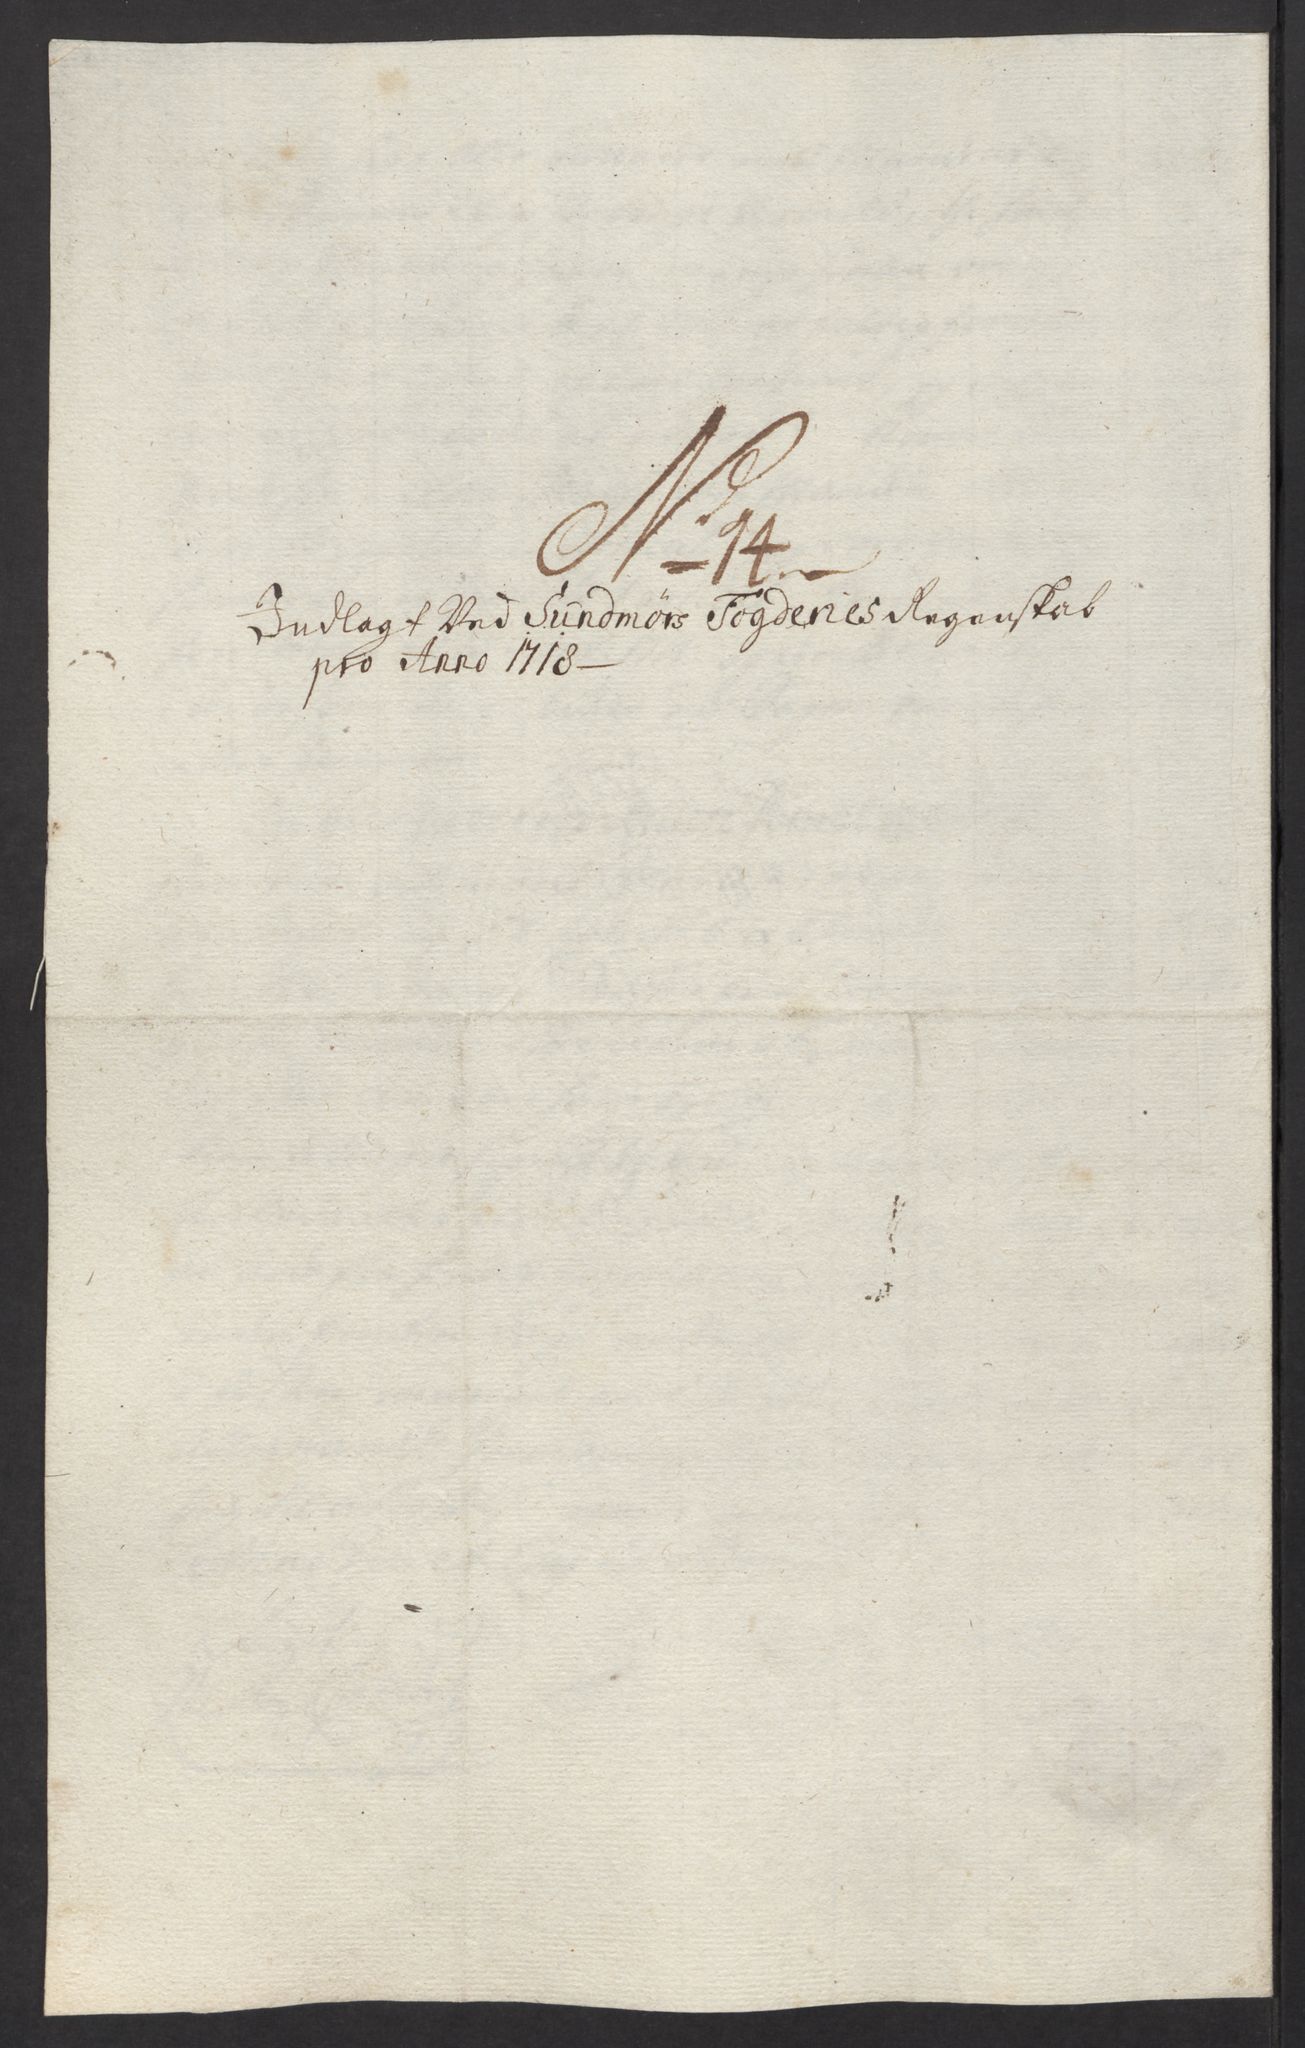 No 14
Indlagt Ved Sundmørs Fogderies Regenskab
pro Anno 1718